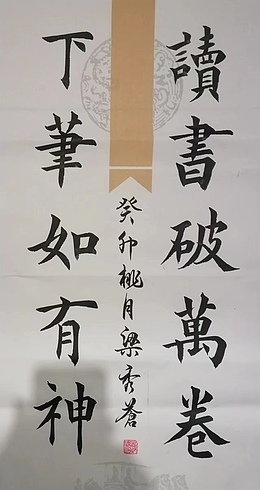 讀書破萬卷
下筆如有神
癸卯桃月梁秀蒼